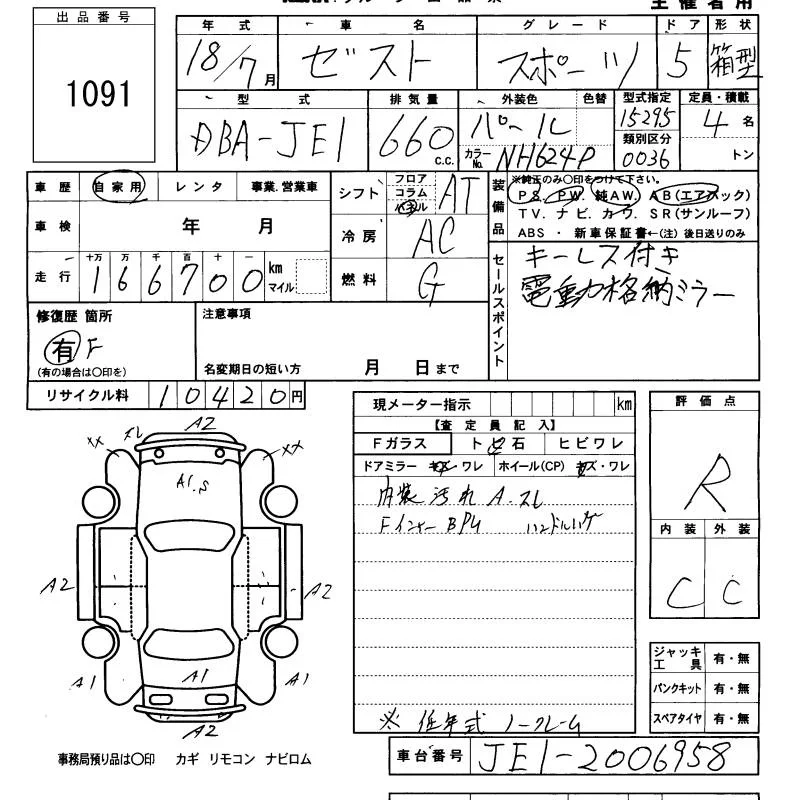 主催者用
出品番号
1091
年式 車名 グレード ドア 形状
18/7月 ゼスト スポーツ 5 箱型
型式 排気量 外装色 色替 型式指定 定員・積載
DBA-JE1 660 C.C. パール 15295 4名
カラーNo. NH624P 類別区分 0036 トン
車歴 自家用 レンタ 事業.営業車
シフト フロア コラム パネル AT
車検 年 月
冷房 AC
走行 十万 万 千 百 十 一
166700 km マイル
燃料 G
装備品
※純正のみ○印をつけて下さい。
PS. PW. 純AW. AB(エアバック)
TV. ナビ. カワ. SR(サンルーフ)
ABS ・ 新車保証書←(注) 後日送りのみ
セールスポイント
キーレス付き
電動格納ミラー
修復歴 箇所
有 F
(有の場合は○印を)
注意事項
名変期日の短い方 月 日まで
リサイクル料 10420円
現メーター指示 km
【査定員記入】
Fガラス トビ石 ヒビワレ
ドアミラー キズ・ワレ ホイール(CP) キズ・ワレ
内装汚れ A.スレ
Fインナー BPU ハンドルハゲ
※ 低年式 ノークレーム
評価点
R
内装 外装
C C
ジャッキ 工具 有・無
パンクキット 有・無
スペアタイヤ 有・無
A2
スレ
××
××
A1.S
A2
A2
A1
A1
A1
A2
事務局預り品は○印 カギ リモコン ナビロム
車台番号 JE1-2006958